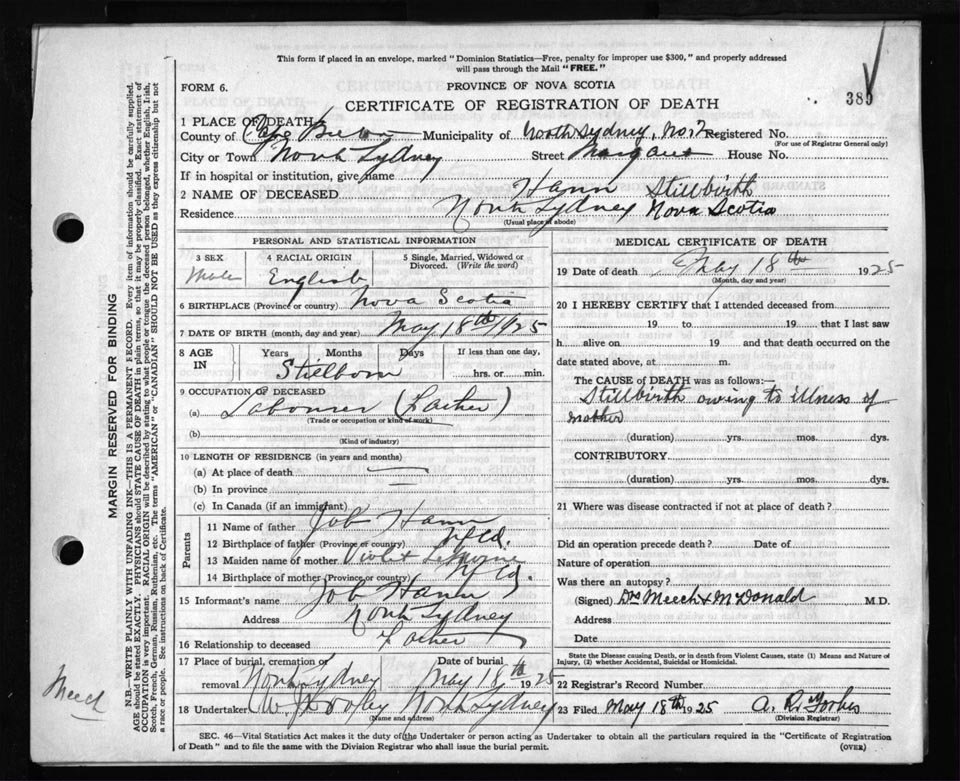 This form if placed in an envelope, marked "Dominion Statistics—Free, penalty for improper use $300," and properly addressed
will pass through the Mail "FREE."
FORM 6.
PROVINCE OF NOVA SCOTIA
CERTIFICATE OF REGISTRATION OF DEATH
389
1 PLACE OF DEATH
County of Cape Breton Municipality of North Sydney, No. Registered No.
(For use of Registrar General only)
City or Town North Sydney Street Margaret House No.
If in hospital or institution, give name
2 NAME OF DECEASED Hann Stillbirth
Residence North Sydney Nova Scotia
(Usual place of abode)
PERSONAL AND STATISTICAL INFORMATION
3 SEX Male
4 RACIAL ORIGIN English
5 Single, Married, Widowed or Divorced. (Write the word)
6 BIRTHPLACE (Province or country) Nova Scotia
7 DATE OF BIRTH (month, day and year) May 18th 1925
8 AGE IN Years Months Days If less than one day,
Stillborn hrs. or min.
9 OCCUPATION OF DECEASED
(a) Labourer (Father)
(Trade or occupation or kind of work)
(b)
(Kind of industry)
10 LENGTH OF RESIDENCE (in years and months)
(a) At place of death
(b) In province
(c) In Canada (if an immigrant)
Parents
11 Name of father Job Hann
12 Birthplace of father (Province or country) Nfld.
13 Maiden name of mother Violet
14 Birthplace of mother (Province or country) Nfld.
15 Informant's name Job Hann
Address North Sydney
16 Relationship to deceased Father
17 Place of burial, cremation or removal North Sydney
Date of burial May 18th 1925
18 Undertaker North Sydney
(Name and address)
MEDICAL CERTIFICATE OF DEATH
19 Date of death May 18th 1925
(Month, day and year)
20 I HEREBY CERTIFY that I attended deceased from
19 to 19 that I last saw
h alive on 19 and that death occurred on the
date stated above, at m.
The CAUSE OF DEATH was as follows:—
Stillbirth owing to illness of
mother
(duration) yrs. mos. dys.
CONTRIBUTORY
(duration) yrs. mos. dys.
21 Where was disease contracted if not at place of death?
Did an operation precede death? Date of
Nature of operation
Was there an autopsy?
(Signed) Drs Meech & McDonald M.D.
Address
Date
State the Disease causing Death, or in death from Violent Causes, state (1) Means and Nature of
Injury, (2) whether Accidental, Suicidal or Homicidal.
22 Registrar's Record Number
23 Filed May 18th 1925 A. R. Forbes
(Division Registrar)
SEC. 46—Vital Statistics Act makes it the duty of the Undertaker or person acting as Undertaker to obtain all the particulars required in the "Certificate of Registration
of Death" and to file the same with the Division Registrar who shall issue the burial permit.
(OVER)
MARGIN RESERVED FOR BINDING
N.B.—WRITE PLAINLY WITH UNFADING INK—THIS IS A PERMANENT RECORD. Every item of information should be carefully supplied.
AGE should be stated EXACTLY. PHYSICIANS should STATE CAUSE OF DEATH in plain terms, so that it may be properly classified. Exact statement of
OCCUPATION is very important. RACIAL ORIGIN will be described by stating to what people or tongue the deceased person belonged, whether English, Irish,
Scotch, French, German, Russian, Ruthenian, etc. The terms "AMERICAN" or "CANADIAN" SHOULD NOT BE USED as they express citizenship but not
a race or people. See instructions on back of Certificate.
Meech